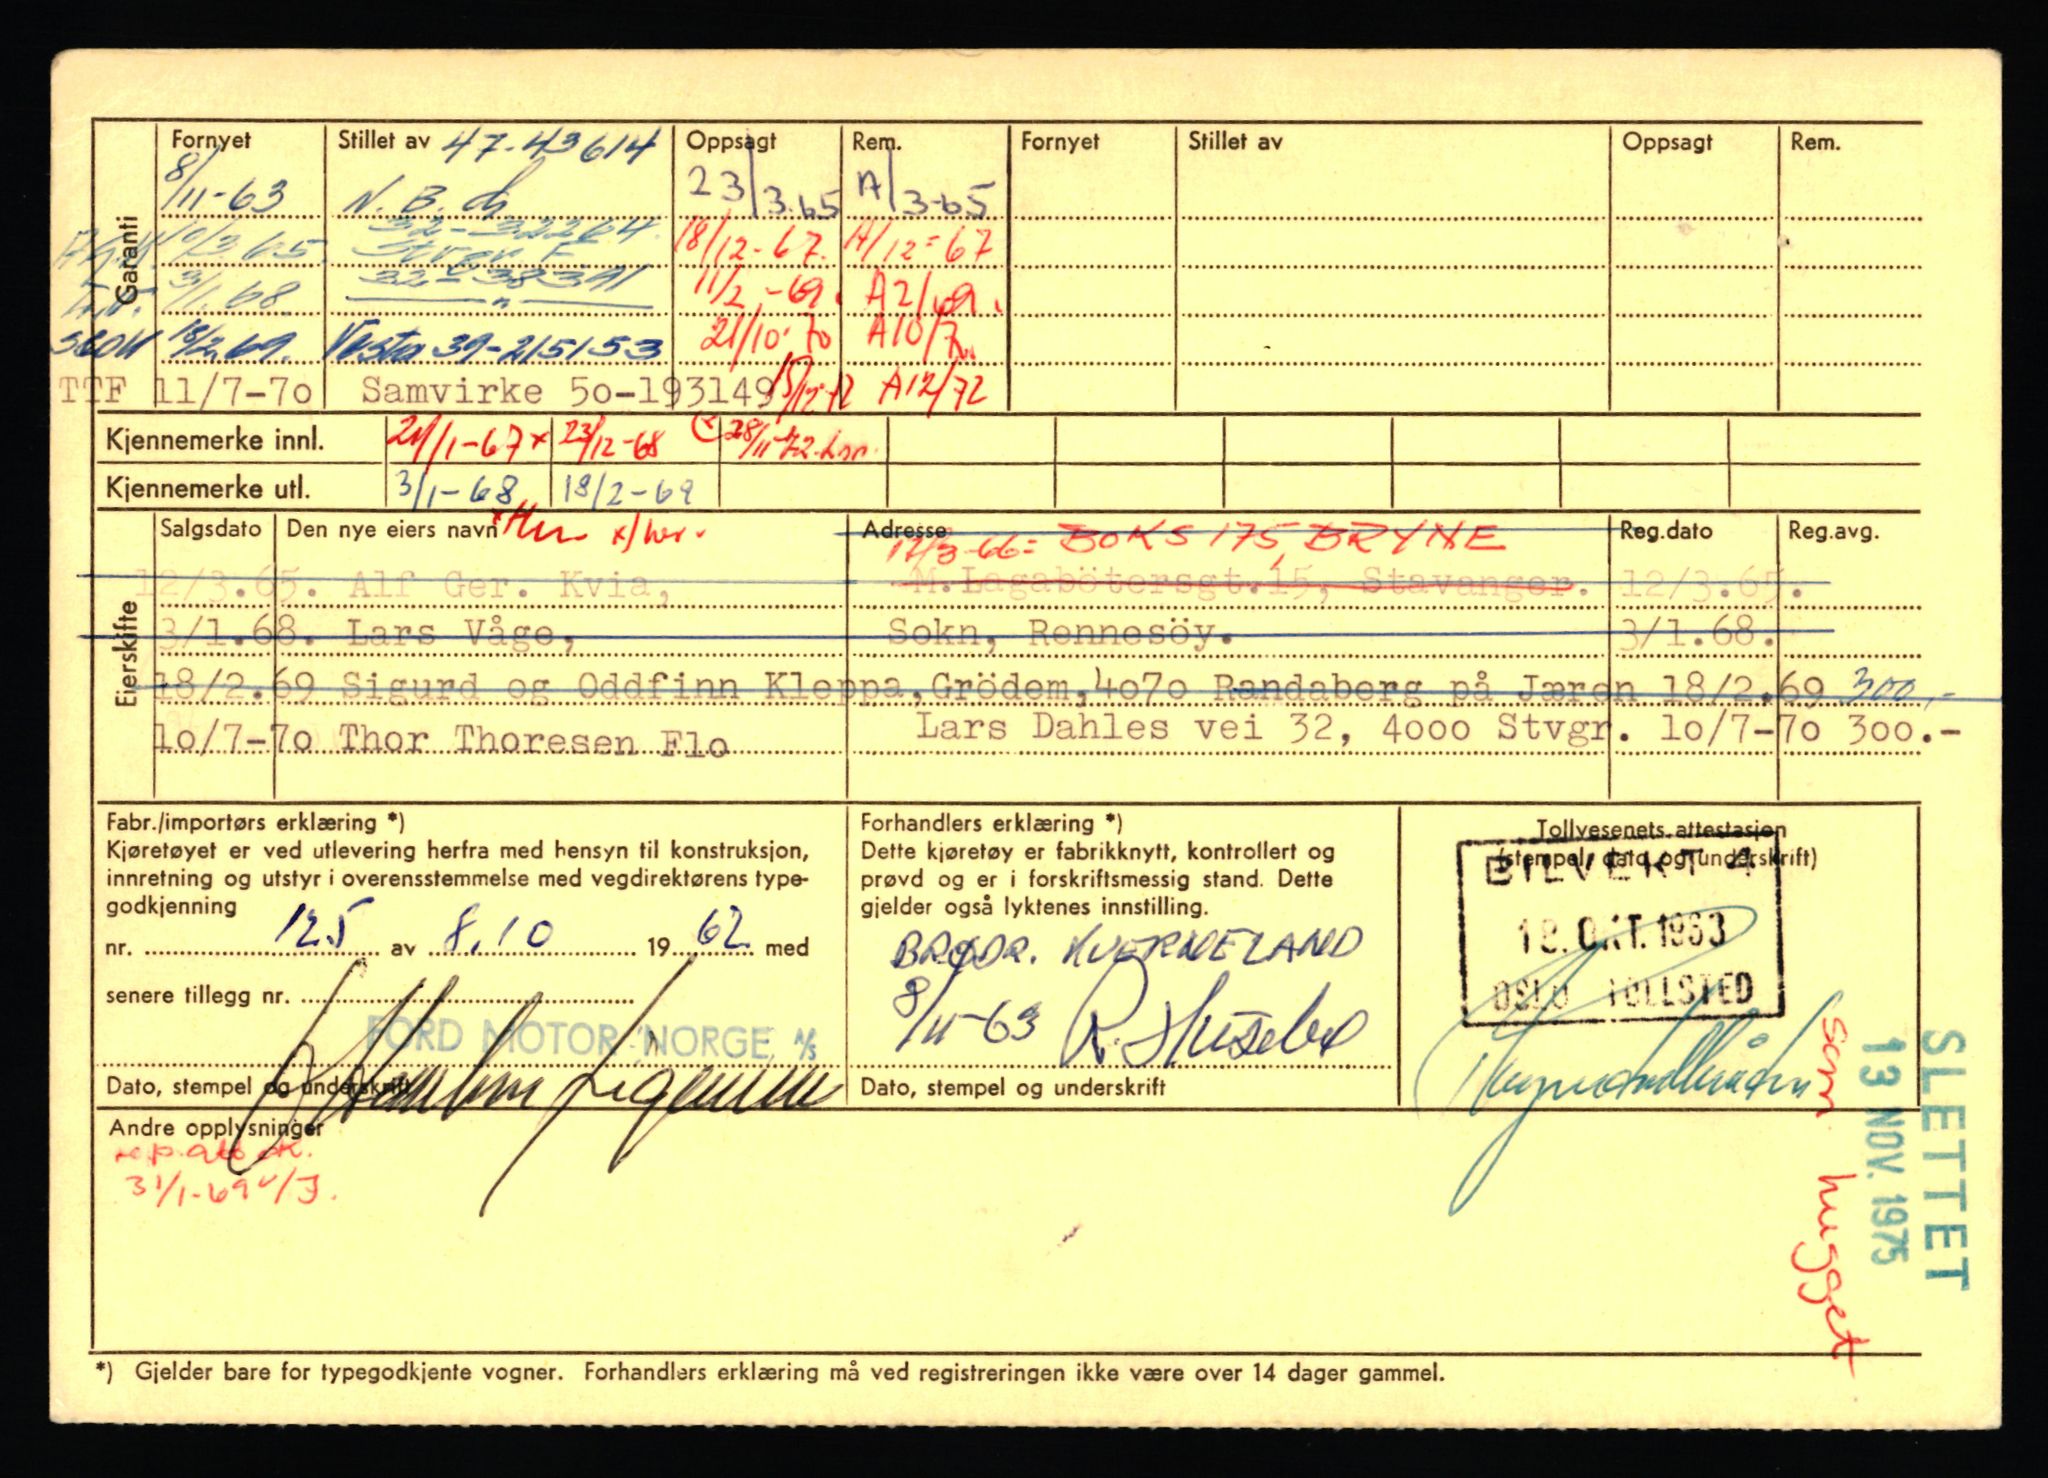 Garanti
Fornyet Stillet av 47-43614 Oppsagt Rem. Fornyet Stillet av Oppsagt Rem.
8/11-63 N.B. 23/3.65 A/3-65
10/3 65 32-32264 18/12-67. A/12=67
3/1.68. 32-38391 11/2-69. A2/69.
18/2.69. Vesta 39-215153 21/10.70 A10/70.
TTF 11/7-70 Samvirke 50-193149 A12/72
Kjennemerke innl. 21/1-67 x 23/12-68 28/11-72
Kjennemerke utl. 3/1-68 18/2-69
Eierskifte
Salgsdato Den nye eiers navn Adresse Reg.dato Reg.avg.
17/3-66= BOKS 175, BRYNE
12/3.65. Alf Ger. Kvia, M.Lagabötersgt.15, Stavanger. 12/3.65.
3/1.68. Lars Våge, Sokn, Rennesöy. 3/1.68.
18/2.69 Sigurd og Oddfinn Kleppa, Grödem, 4070 Randaberg på Jæren 18/2.69 300,-
10/7-70 Thor Thoresen Flo Lars Dahles vei 32, 4000 Stvgr. 10/7-70 300.-
Fabr./importørs erklæring *)
Kjøretøyet er ved utlevering herfra med hensyn til konstruksjon,
innretning og utstyr i overensstemmelse med vegdirektørens type-
godkjenning
nr. 125 av 8.10 1962 med
senere tillegg nr.
FORD MOTOR NORGE A/S
Dato, stempel og underskrift
Forhandlers erklæring *)
Dette kjøretøy er fabrikknytt, kontrollert og
prøvd og er i forskriftsmessig stand. Dette
gjelder også lyktenes innstilling.
BRØDR. KVERNELAND
8/11-63
Dato, stempel og underskrift
Tollvesenets attestasjon
(stempel, dato og underskrift)
BILVEKT 4
18. OKT. 1963
OSLO TOLLSTED
Andre opplysninger
31/1-69
SLETTET
13 NOV. 1975
som hugget
*) Gjelder bare for typegodkjente vogner. Forhandlers erklæring må ved registreringen ikke være over 14 dager gammel.